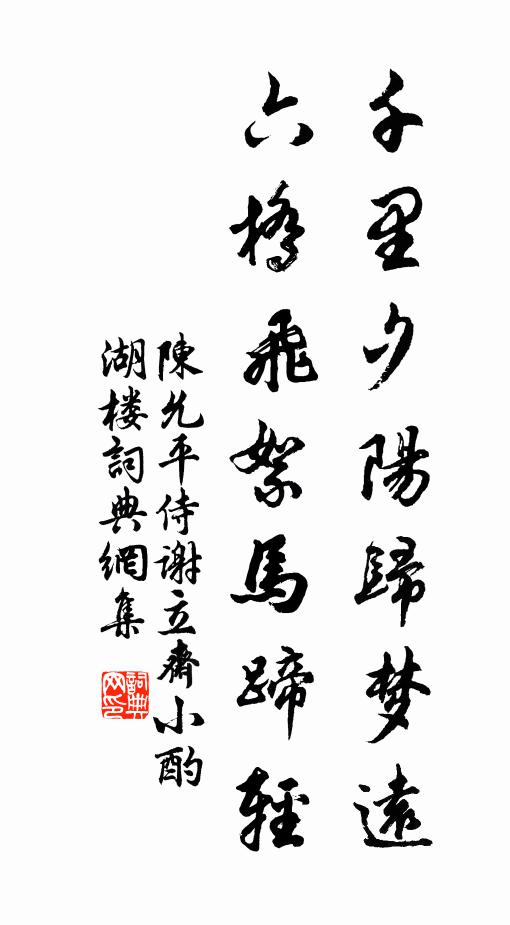 千里夕陽歸梦遠
六橋飛絮馬蹄輕
陳允平侍谢立齋小酌
湖楼詞典網集
詞典网印